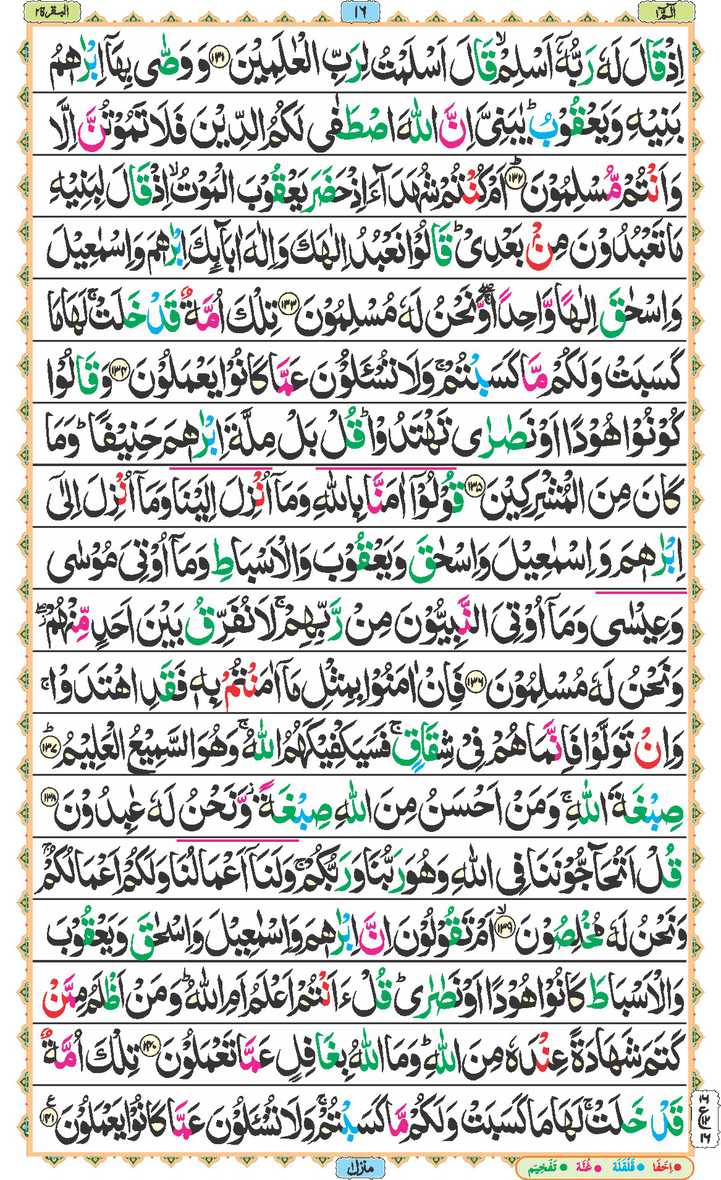 البقرة ٢
١٦
الٓمّٓ ١
اِذْ قَالَ لَهٗ رَبُّهٗۤ اَسْلِمْ ۙ قَالَ اَسْلَمْتُ لِرَبِّ الْعٰلَمِیْنَ ﴿۱۳۱﴾ وَ وَصّٰی بِهَاۤ اِبْرٰهٖمُ
بَنِیْهِ وَ یَعْقُوْبُ ؕ یٰبَنِیَّ اِنَّ اللّٰهَ اصْطَفٰی لَكُمُ الدِّیْنَ فَلَا تَمُوْتُنَّ اِلَّا
وَ اَنْتُمْ مُّسْلِمُوْنَ ﴿۱۳۲﴾ؕ اَمْ كُنْتُمْ شُهَدَآءَ اِذْ حَضَرَ یَعْقُوْبَ الْمَوْتُ ۙ اِذْ قَالَ لِبَنِیْهِ
مَا تَعْبُدُوْنَ مِنْۢ بَعْدِیْ ؕ قَالُوْا نَعْبُدُ اِلٰهَكَ وَ اِلٰهَ اٰبَآىِٕكَ اِبْرٰهٖمَ وَ اِسْمٰعِیْلَ
وَ اِسْحٰقَ اِلٰهًا وَّاحِدًا ۖۚ وَّ نَحْنُ لَهٗ مُسْلِمُوْنَ ﴿۱۳۳﴾ تِلْكَ اُمَّةٌ قَدْ خَلَتْ ۚ لَهَا مَا
كَسَبَتْ وَ لَكُمْ مَّا كَسَبْتُمْ ۚ وَ لَا تُسْـَٔلُوْنَ عَمَّا كَانُوْا یَعْمَلُوْنَ ﴿۱۳۴﴾ وَ قَالُوْا
كُوْنُوْا هُوْدًا اَوْ نَصٰرٰی تَهْتَدُوْا ؕ قُلْ بَلْ مِلَّةَ اِبْرٰهٖمَ حَنِیْفًا ؕ وَ مَا
كَانَ مِنَ الْمُشْرِكِیْنَ ﴿۱۳۵﴾ قُوْلُوْۤا اٰمَنَّا بِاللّٰهِ وَ مَاۤ اُنْزِلَ اِلَیْنَا وَ مَاۤ اُنْزِلَ اِلٰۤی
اِبْرٰهٖمَ وَ اِسْمٰعِیْلَ وَ اِسْحٰقَ وَ یَعْقُوْبَ وَ الْاَسْبَاطِ وَ مَاۤ اُوْتِیَ مُوْسٰی
وَ عِیْسٰی وَ مَاۤ اُوْتِیَ النَّبِیُّوْنَ مِنْ رَّبِّهِمْ ۚ لَا نُفَرِّقُ بَیْنَ اَحَدٍ مِّنْهُمْ ؗۖ
وَ نَحْنُ لَهٗ مُسْلِمُوْنَ ﴿۱۳۶﴾ فَاِنْ اٰمَنُوْا بِمِثْلِ مَاۤ اٰمَنْتُمْ بِهٖ فَقَدِ اهْتَدَوْا ۚ
وَ اِنْ تَوَلَّوْا فَاِنَّمَا هُمْ فِیْ شِقَاقٍ ۚ فَسَیَكْفِیْكَهُمُ اللّٰهُ ۚ وَ هُوَ السَّمِیْعُ الْعَلِیْمُ ﴿۱۳۷﴾ؕ
صِبْغَةَ اللّٰهِ ۚ وَ مَنْ اَحْسَنُ مِنَ اللّٰهِ صِبْغَةً ؗ وَّ نَحْنُ لَهٗ عٰبِدُوْنَ ﴿۱۳۸﴾
قُلْ اَتُحَآجُّوْنَنَا فِی اللّٰهِ وَ هُوَ رَبُّنَا وَ رَبُّكُمْ ۚ وَ لَنَاۤ اَعْمَالُنَا وَ لَكُمْ اَعْمَالُكُمْ ۚ
وَ نَحْنُ لَهٗ مُخْلِصُوْنَ ﴿۱۳۹﴾ۙ اَمْ تَقُوْلُوْنَ اِنَّ اِبْرٰهٖمَ وَ اِسْمٰعِیْلَ وَ اِسْحٰقَ وَ یَعْقُوْبَ
وَ الْاَسْبَاطَ كَانُوْا هُوْدًا اَوْ نَصٰرٰی ؕ قُلْ ءَاَنْتُمْ اَعْلَمُ اَمِ اللّٰهُ ؕ وَ مَنْ اَظْلَمُ مِمَّنْ
كَتَمَ شَهَادَةً عِنْدَهٗ مِنَ اللّٰهِ ؕ وَ مَا اللّٰهُ بِغَافِلٍ عَمَّا تَعْمَلُوْنَ ﴿۱۴۰﴾ تِلْكَ اُمَّةٌ
قَدْ خَلَتْ ۚ لَهَا مَا كَسَبَتْ وَ لَكُمْ مَّا كَسَبْتُمْ ۚ وَ لَا تُسْـَٔلُوْنَ عَمَّا كَانُوْا یَعْمَلُوْنَ ﴿۱۴۱﴾ ع
۱۶
ع ۱۲
۱۶
منزل ۱
اِخفَا قَلْقَلَه غُنَّه تَفْخِیم